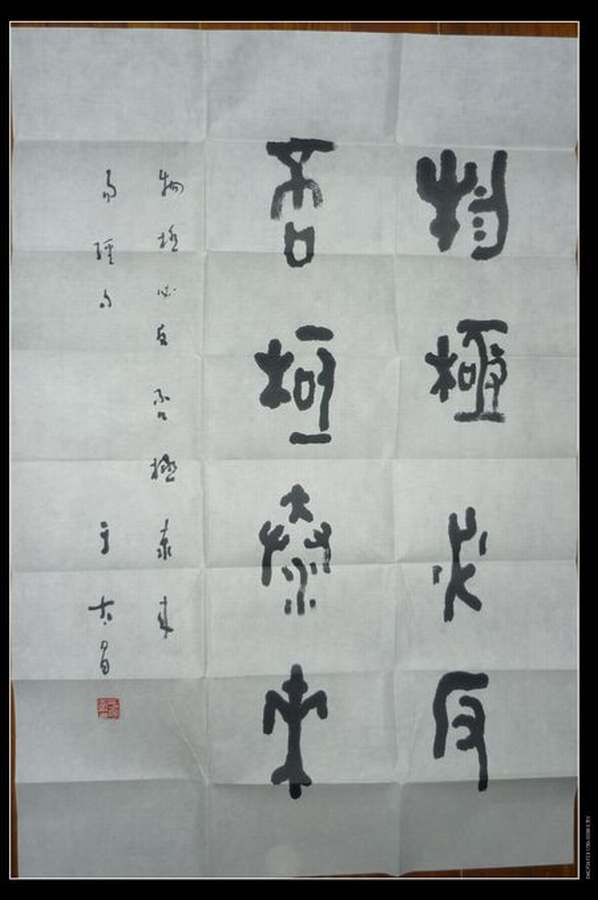 物極必反
否極泰來
物極必反否極泰來
易經句